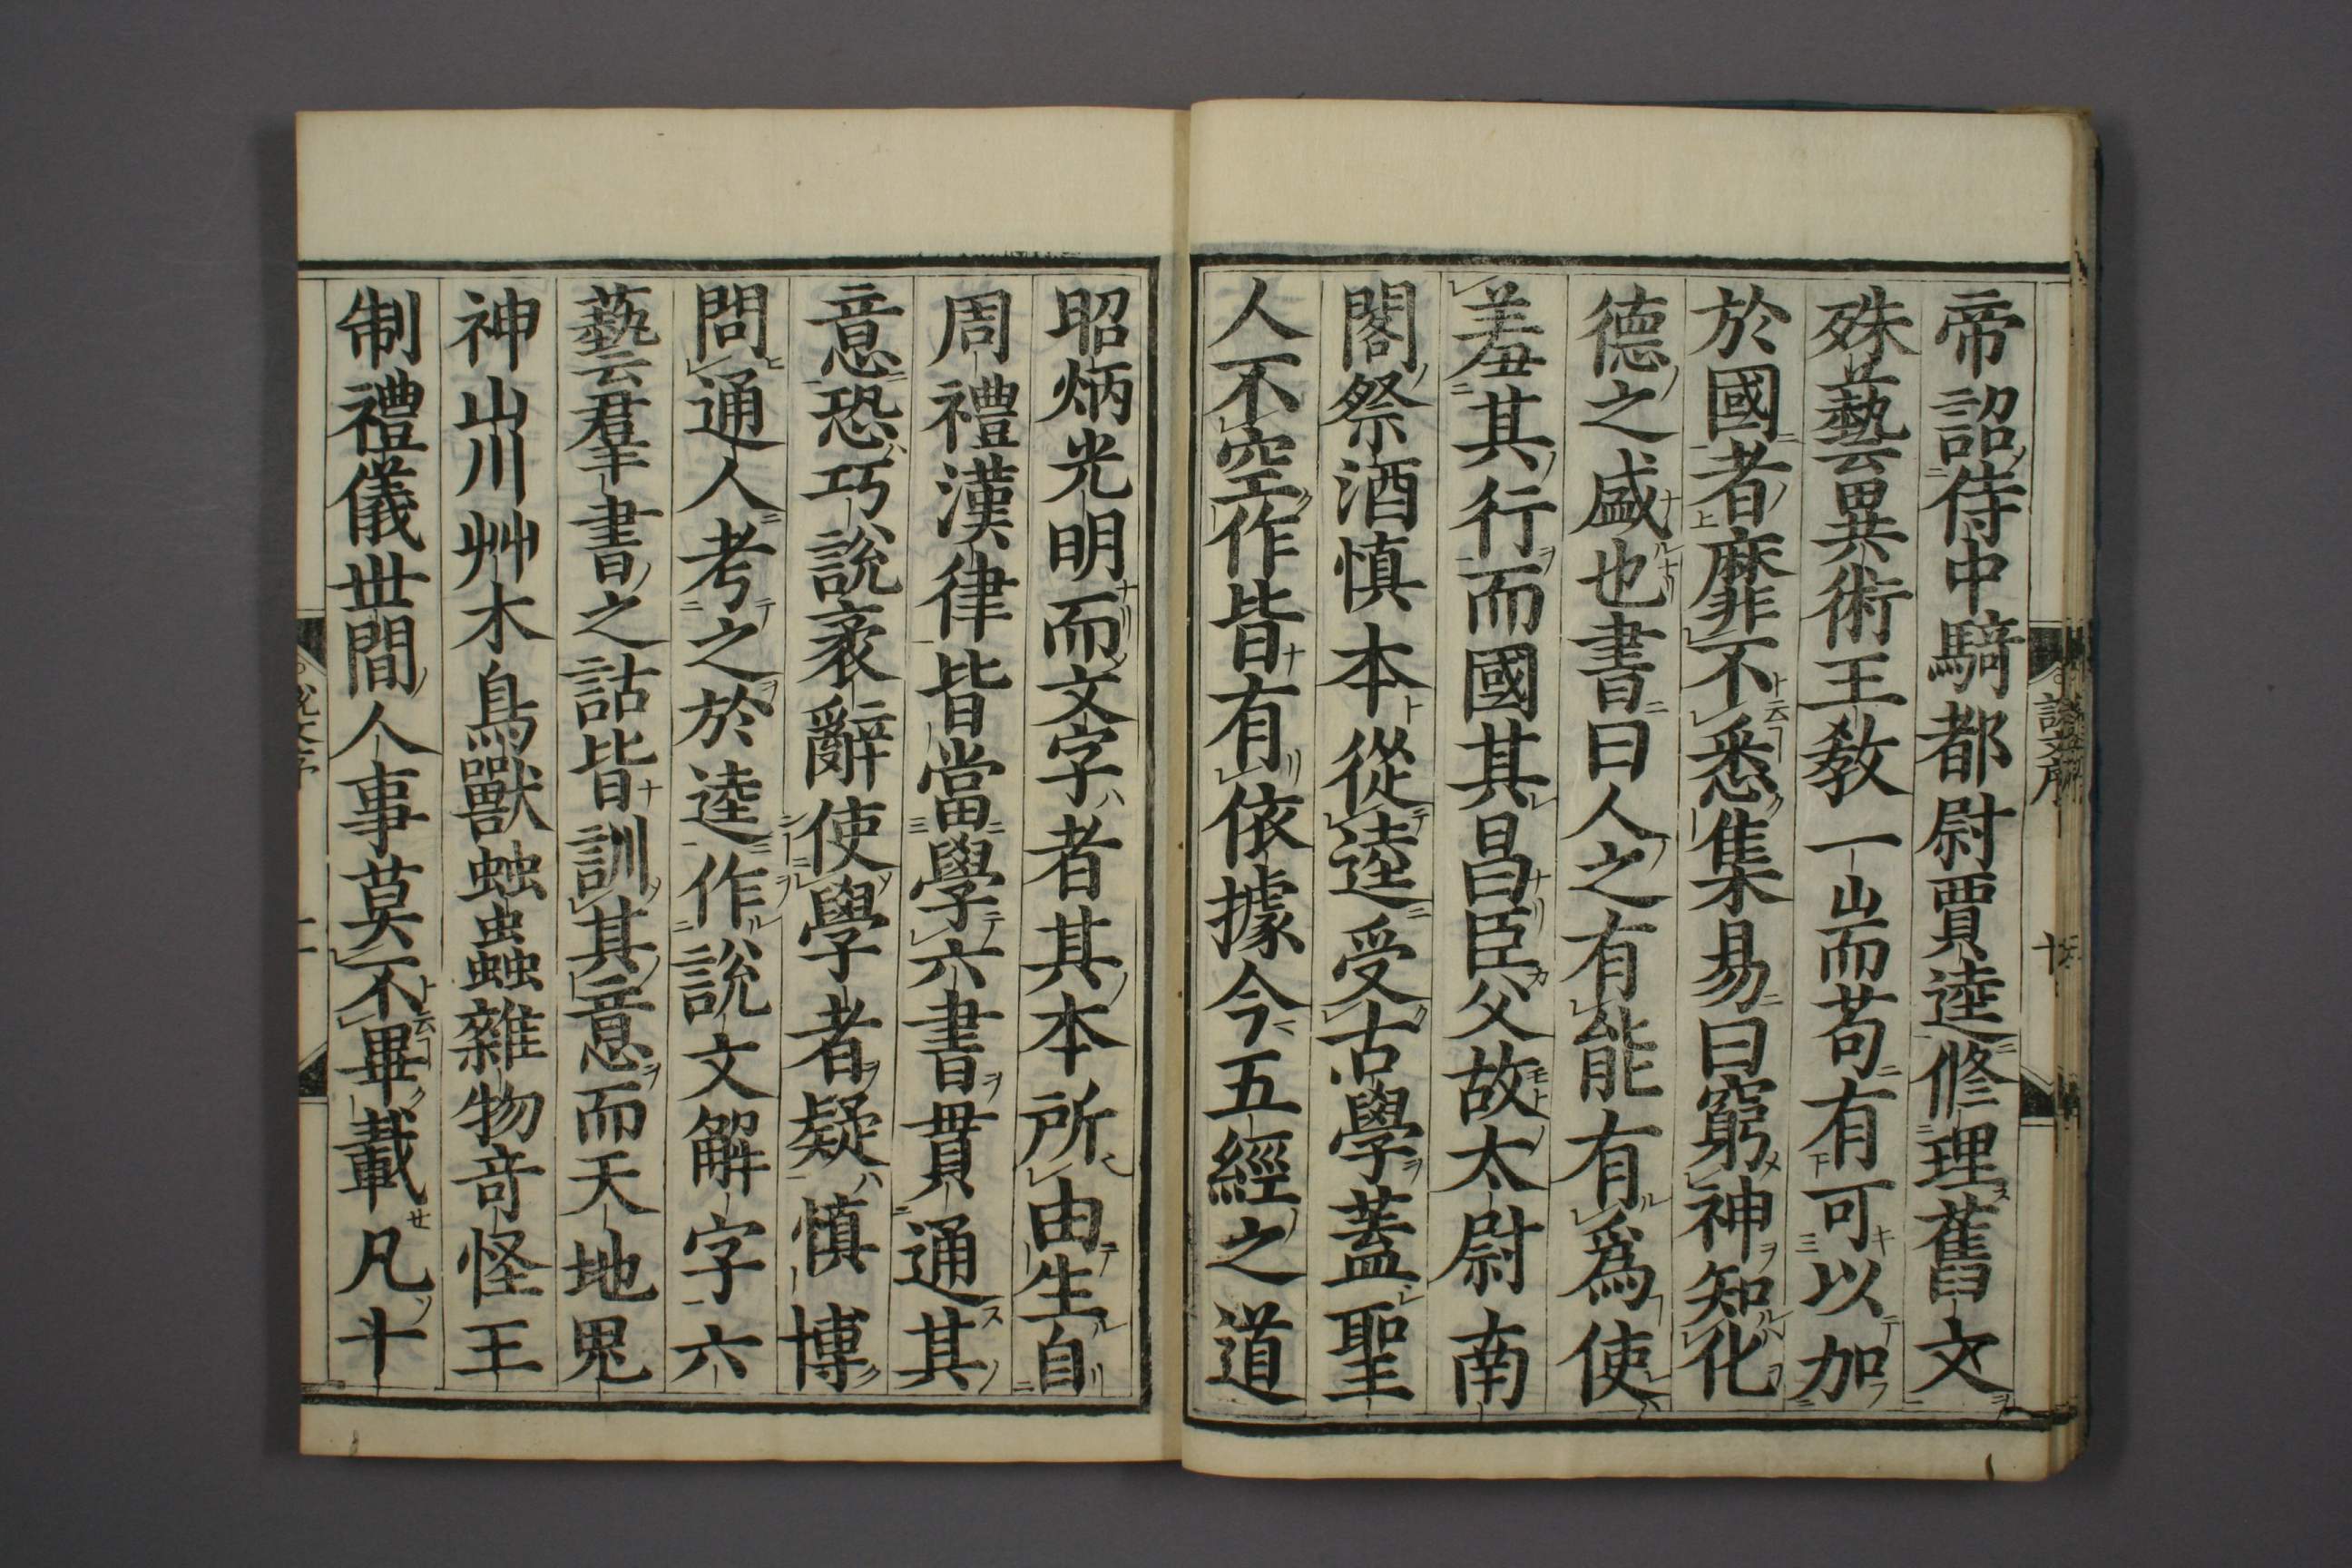 帝詔侍中騎都尉賈逵修理舊文
殊藝異術王敎一耑而苟有可以加
於國者靡不悉集易曰窮神知化
德之盛也書曰人之有能有爲使
羞其行而國其昌臣父故太尉南
閣祭酒愼本從逵受古學蓋聖
人不空作皆有依據今五經之道
昭炳光明而文字者其本所由生自
周禮漢律皆當學六書貫通其
意恐巧說衺辭使學者疑愼博
問通人考之於逵作說文解字六
藝羣書之詁皆訓其意而天地鬼
神山川艸木鳥獸䖵蟲雜物奇怪王
制禮儀世間人事莫不畢載凡十
說文序